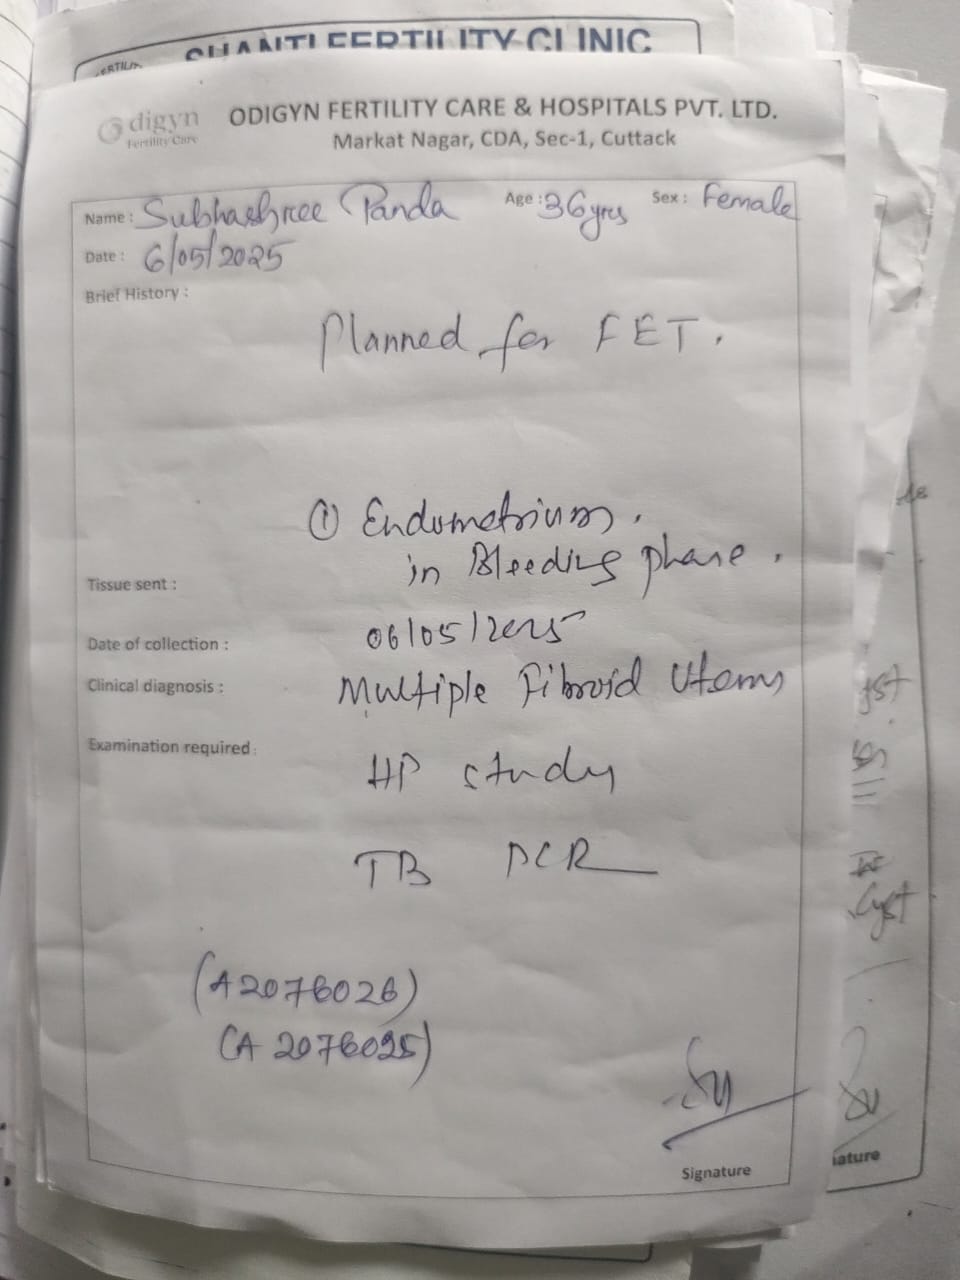 SHANTI FERTILITY CLINIC
digyn
Fertility Care
ODIGYN FERTILITY CARE & HOSPITALS PVT. LTD.
Markat Nagar, CDA, Sec-1, Cuttack
Name : Subhashree Panda Age : 36 yrs Sex : Female
Date : 6/05/2025
Brief History :
Planned for FET.
① Endometrium.
in Bleeding phase.
Tissue sent :
Date of collection : 06/05/2025
Clinical diagnosis : Multiple Fibroid Uterus
Examination required : HP study
TB PCR
(A2076026)
(A 2076025)
Signature
Cyst
nature